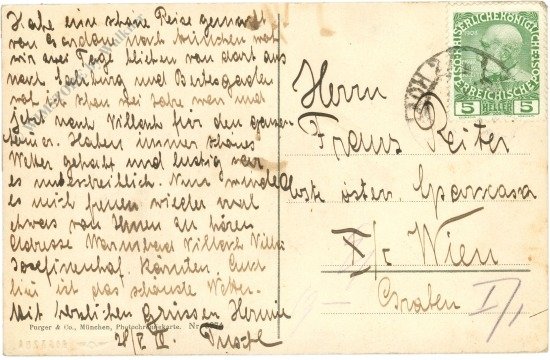 Habe eine schöne Reise gemacht
von Bardau nach München wo
wir drei Tage blieben von dort aus
nach Salzburg und Berchtesgaden
wo ich schon bei war und
jetzt nach Villach für den ganzen
Haben immer schönes
Wetter gehabt und lustig war
es unbeschreiblich. Nun würde
es mich freuen wieder mal
etwas von Ihnen zu hören
Adresse Warmbad Villach Villa
Josefinenhof. Kärnten. Auch
hier ist das schönste Wetter.
Mit herzlichen Grüssen Hermine
28/7
Purger & Co., München, Photochromiekarte. Nr.
Herrn
Franz Reiter
Erste österr. Sparcassa
I/ Wien
Graben
I/1
KAISERLICHE KÖNIGLICHE
ÖSTERREICHISCHE
5 HELLER 5
1908